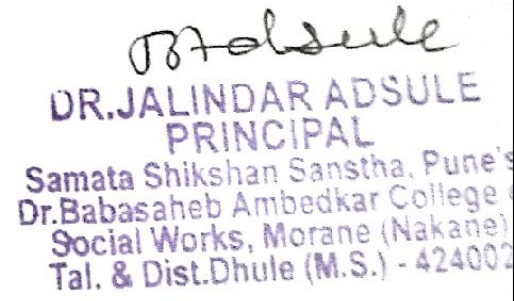 Adsule
DR.JALINDAR ADSULE
PRINCIPAL
Samata Shikshan Sanstha. Pune's
Dr.Babasaheb Ambedkar College
Social Works, Morane (Nakane)
Tal. & Dist.Dhule (M.S.) - 424002